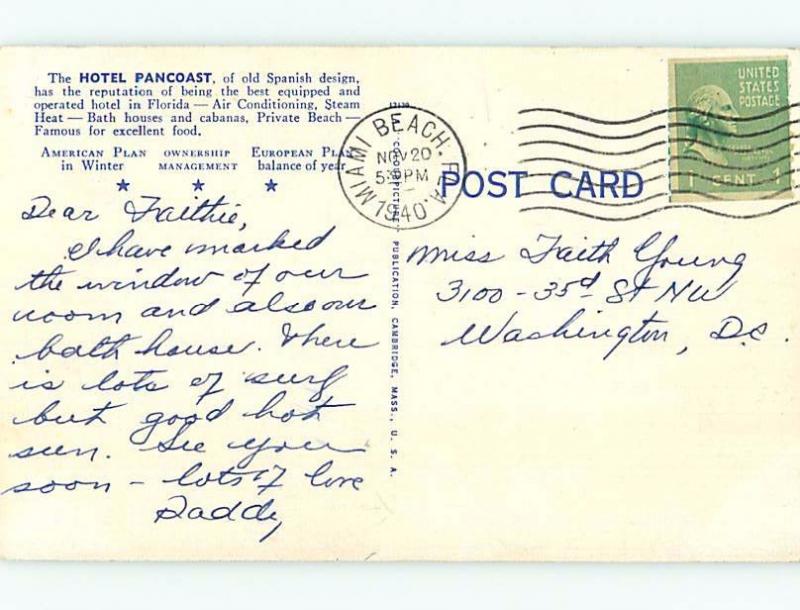 The HOTEL PANCOAST, of old Spanish design,
has the reputation of being the best equipped and
operated hotel in Florida — Air Conditioning, Steam
Heat — Bath houses and cabanas, Private Beach —
Famous for excellent food.
AMERICAN PLAN
in Winter
OWNERSHIP
MANAGEMENT
EUROPEAN PLAN
balance of year
Dear Faithie,
I have marked
the window of our
room and also our
bath house. There
is lots of surf
but good hot
sun. See you
soon – lots of love
Daddy
PUBLICATION, CAMBRIDGE, MASS., U. S. A.
MIAMI BEACH, FLA.
NOV 20
PM
1940
POST CARD
UNITED
STATES
POSTAGE
1 CENT 1
Miss Faith Young
3100 - 35th St NW
Washington, D.C.